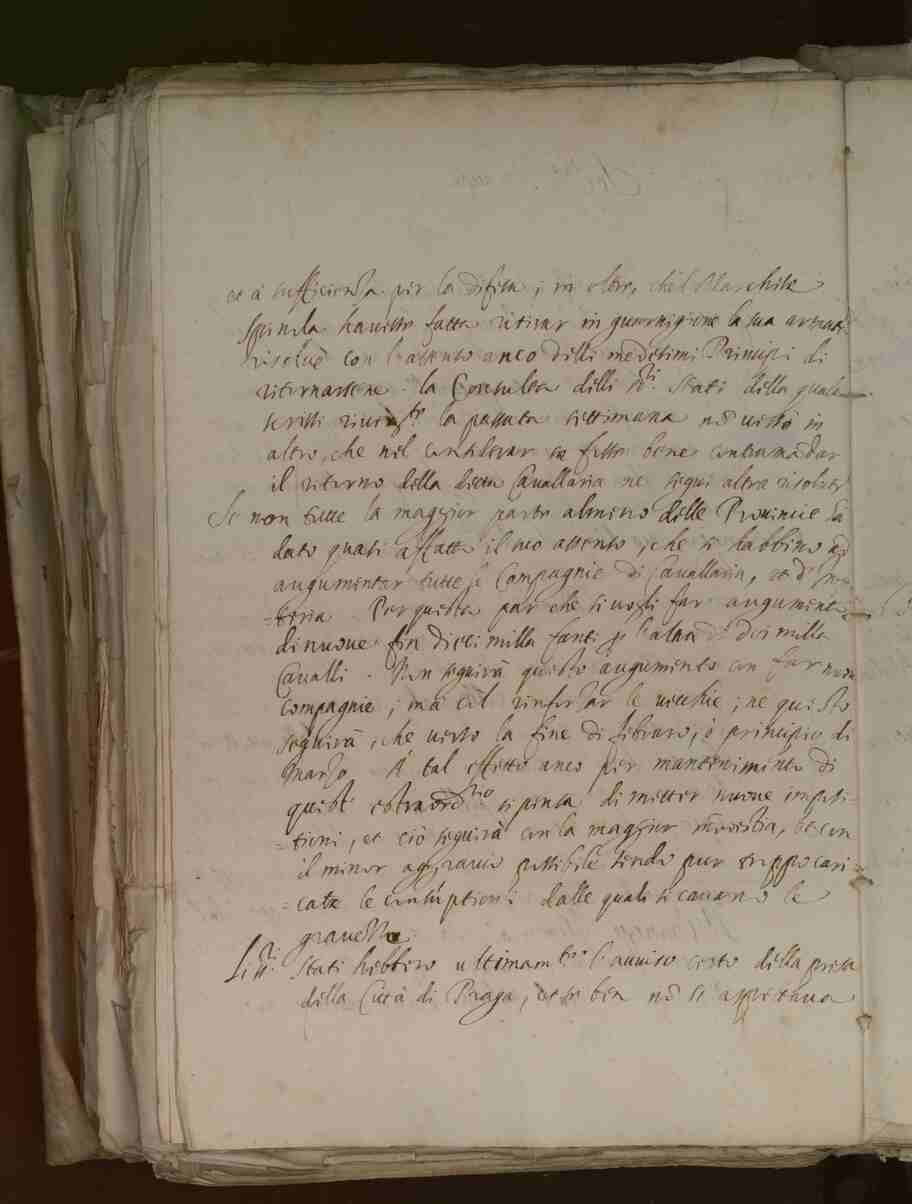 et à sufficienza per la difesa; in oltre, ch'il Marchese
Spinola havesse fatta ritirar in guarnigione la sua armata
risolse con l'assenso anco delli medesimi Principi di
ritornarsene. la Consulta delli SS.ri Stati della quale
scrissi river.te la passata settimana nõ versò in
altro, che nel considerar se fosse bene contramãdar
il ritorno della detta Cavallaria ne seguì altra risolut.e
Se non tutte la maggior parte almeno delle Provincie hà
dato quasi affatto il suo assenso, che si habbino ad
augumentar tutte le Compagnie di Cavallaria, et d'Infã-
=teria. Per questa par che si vogli far augumento
di nuove fin dieci milla fanti p̱ l'altra di doi milla
Cavalli. Non seguirà questo augumento con far nuove
compagnie; mà col rinforzar le vecchie; ne questo
seguirà, che verso la fine di febraro, ò principio di
Marzo. A tal effetto anco per mantenimento di
questi estraord.rio si pensa di metter nuove imposi-
=tioni, et ciò seguirà con la maggior modestia, et con
il minor aggravio possibile sendo pur troppo cari=
=cate le consũptioni dalle quali si cavano le
gravezze.
Li SS.ri Stati hebbero ultimam.te l'avviso certo della presa
della Città di Praga, et se ben nõ si aspettava